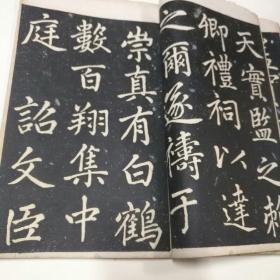 之賴
天實監之
卿禮祠以達
之爾遂禱于
崇真有白鶴
數百翔集中
庭詔文臣